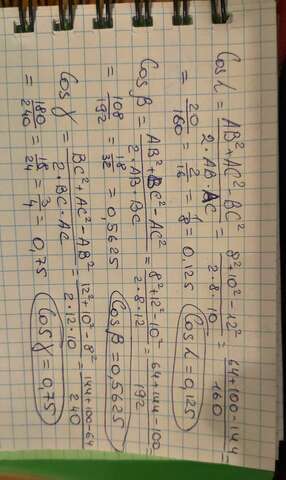 Cos α = AB²+AC²-BC² / 2·AB·AC = 8²+10²-12² / 2·8·10 = 64+100-144 / 160 =
= 20/160 = 2/16 = 1/8 = 0,125 Cos α = 0,125
Cos β = AB²+BC²-AC² / 2·AB·BC = 8²+12²-10² / 2·8·12 = 64+144-100 / 192 =
= 108/192 = 18/32 = 0,5625 Cos β = 0,5625
Cos γ = BC²+AC²-AB² / 2·BC·AC = 12²+10²-8² / 2·12·10 = 144+100-64 / 240
= 180/240 = 18/24 = 3/4 = 0,75 Cos γ = 0,75